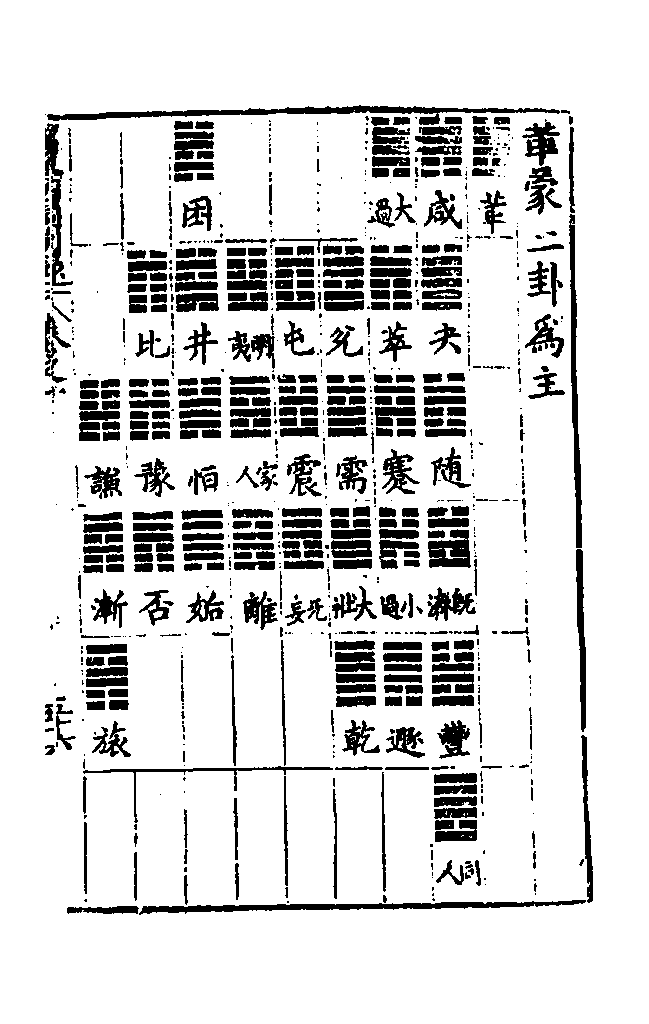 革蒙二卦爲主
革 咸 大過 困
夬 萃 兌 屯 明夷 井 比
随 蹇 需 震 家人 恒 豫 謙
既濟 小過 大壯 无妄 離 姤 否 漸
豐 遯 乾 旅
同人